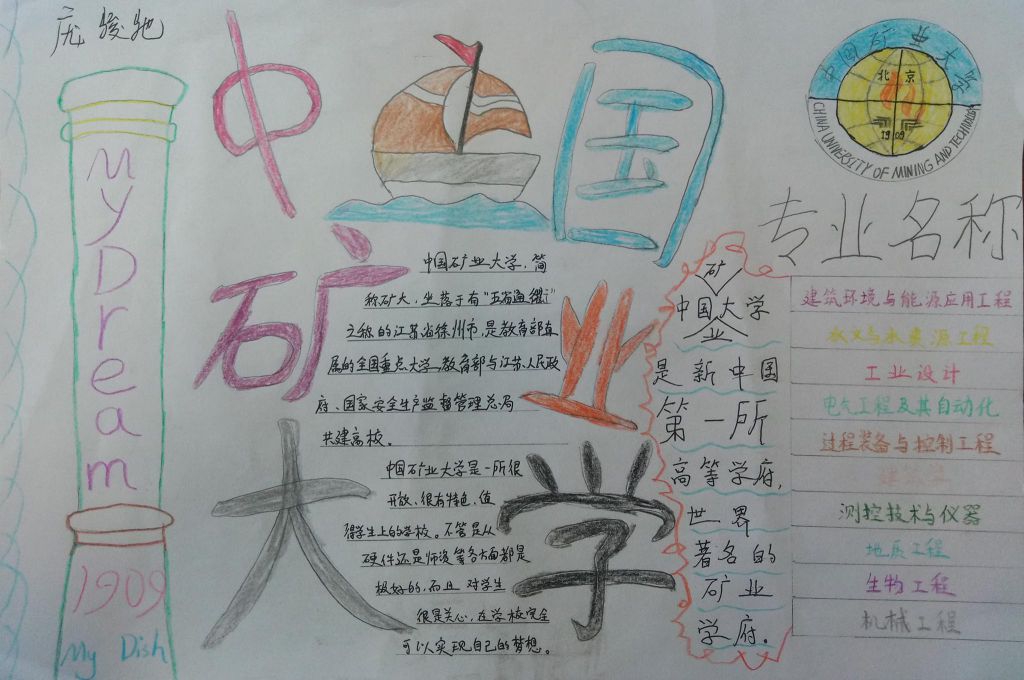 庞骏驰
My Dream
1909
My Dish
中国
矿业
大学
中国矿业大学
北京
1909
CHINA UNIVERSITY OF MINING AND TECHNOLOGY
中国矿业大学,简
称矿大,坐落于有"五省通衢"
之称的江苏省徐州市,是教育部直
属的全国重点大学,教育部与江苏人民政
府、国家安全生产监督管理总局
共建高校。
中国矿业大学是一所很
开放、很有特色、值
得学生上的学校。不管是从
硬件还是师资等各方面都是
极好的,而且对学生
很是关心,在学校完全
可以实现自己的梦想。
中国矿业大学
是新中国
第一所
高等学府,
世界
著名的
矿业
学府。
专业名称
建筑环境与能源应用工程
水文与水资源工程
工业设计
电气工程及其自动化
过程装备与控制工程
测控技术与仪器
地质工程
生物工程
机械工程